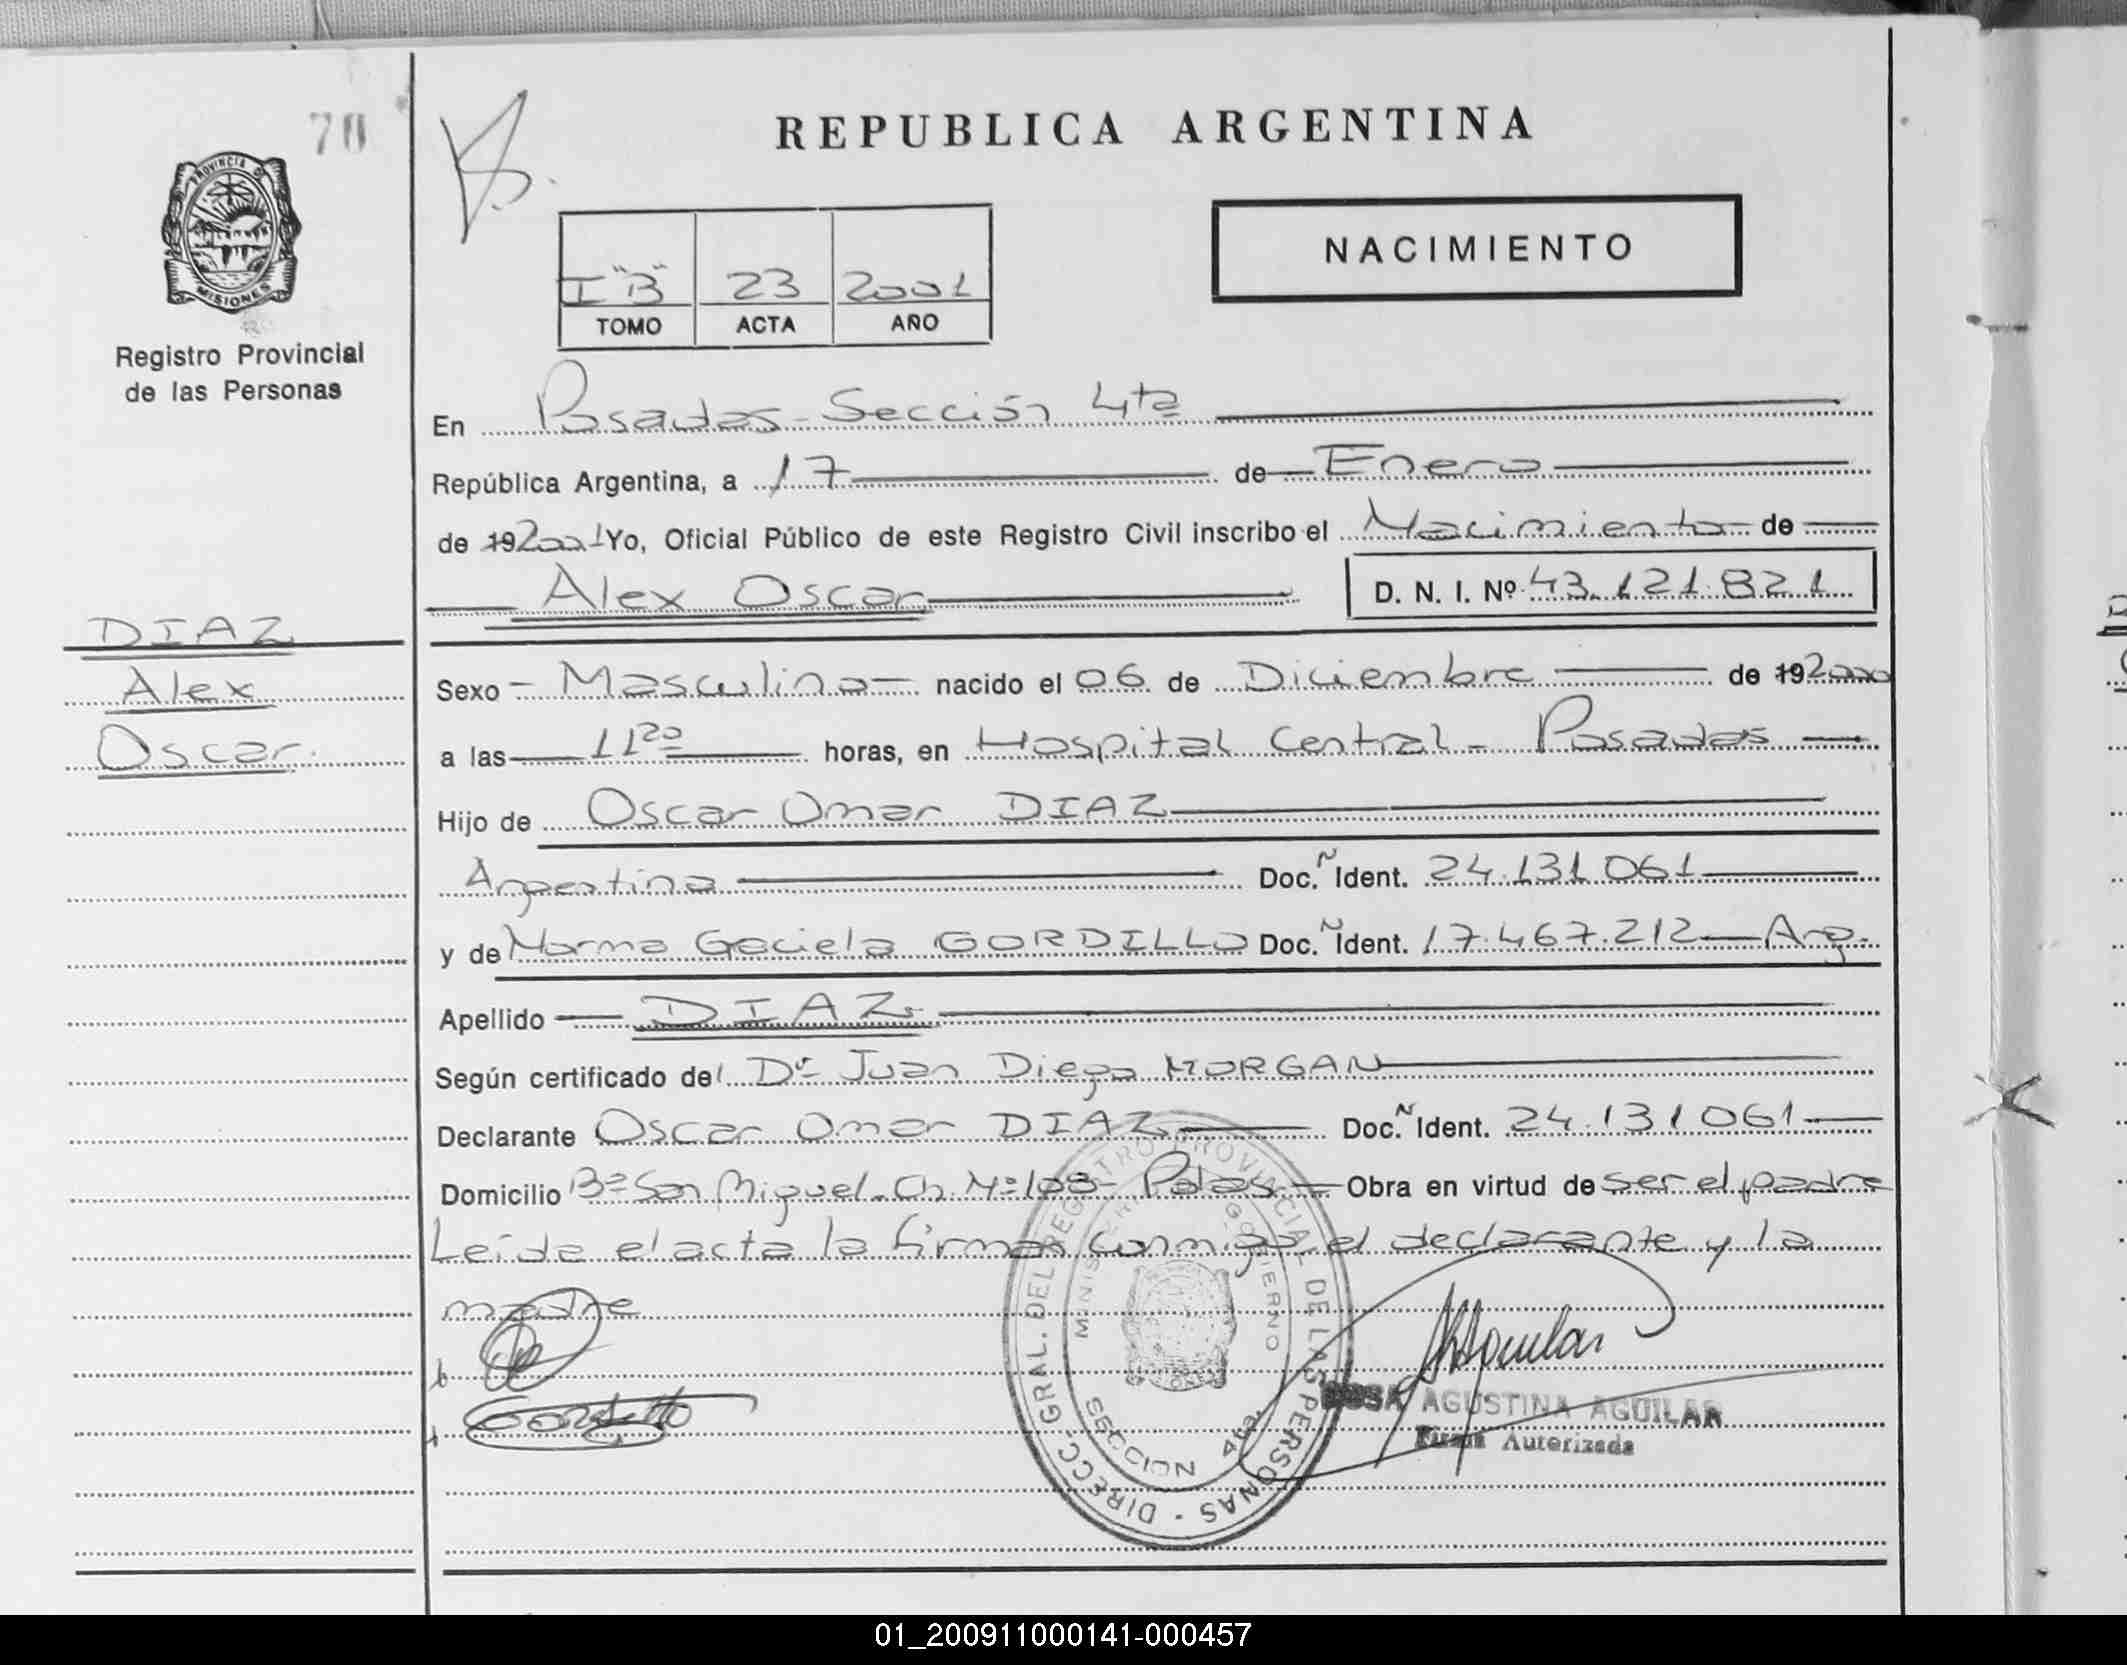 70
REPUBLICA ARGENTINA
PROVINCIA D
MISIONES
Registro Provincial
de las Personas
I "B" 23 2001
TOMO ACTA AÑO
NACIMIENTO
En Posadas - Sección 4ta
República Argentina, a 17 de Enero
de 192001 Yo, Oficial Público de este Registro Civil inscribo el Nacimiento de
Alex Oscar D. N. I. Nº 43.121.821
DIAZ
Alex
Oscar.
Sexo - Masculino - nacido el 06 de Diciembre de 192000
a las 11 20 horas, en Hospital Central - Posadas
Hijo de Oscar Omar DIAZ
Argentina Doc. Ñ Ident. 24.131.061
y de Norma Gaciela GORDILLO Doc. Ñ Ident. 17.467.212 - Arg.
Apellido DIAZ
Según certificado del Dr Juan Diego MORGAN
Declarante Oscar Omar DIAZ Doc. Ñ Ident. 24.131.061
Domicilio Bº San Miguel. Ch. Nº 108 - Pdas. Obra en virtud de ser el padre
Leída el acta la firman conmigo el declarante y la
madre
DIRECC. GRAL. DEL REGISTRO PROVINCIAL DE LAS PERSONAS
MINISTERIO GOBIERNO
SECCION 4ta.
ROSA AGUSTINA AGUILAR
Firma Autorizada
01_200911000141-000457